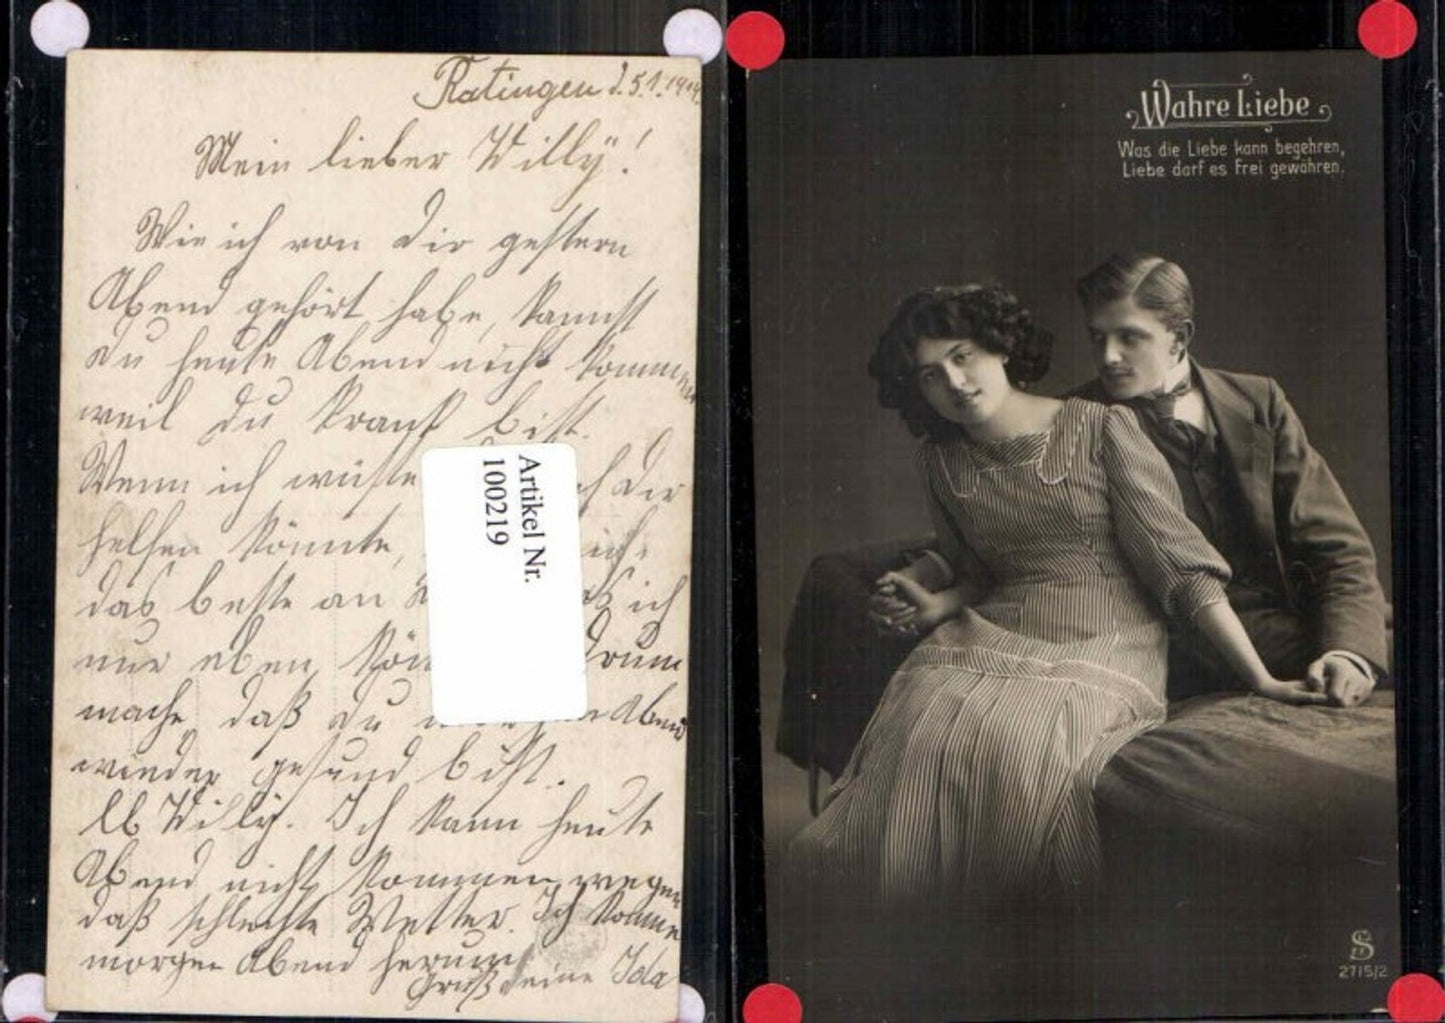 Ratingen d. 5.1.1914
Mein lieber Willy!
Wie ich von Dir gestern
Abend gehört habe, kannst
du heute Abend nicht kommen
weil du krank bist.
Wenn ich wüßte ich Dir
helfen könnte,
das beste an ich
nur eben kön drum
mache, daß du Abend
wieder gesund bist.
lb Willy. Ich kann heute
Abend nicht kommen wegen
daß schlechte Wetter. Ich komme
morgen Abend herum
Gruß deine Ida
Artikel Nr.
100219
Wahre Liebe
Was die Liebe kann begehren,
Liebe darf es frei gewähren.
2715/2